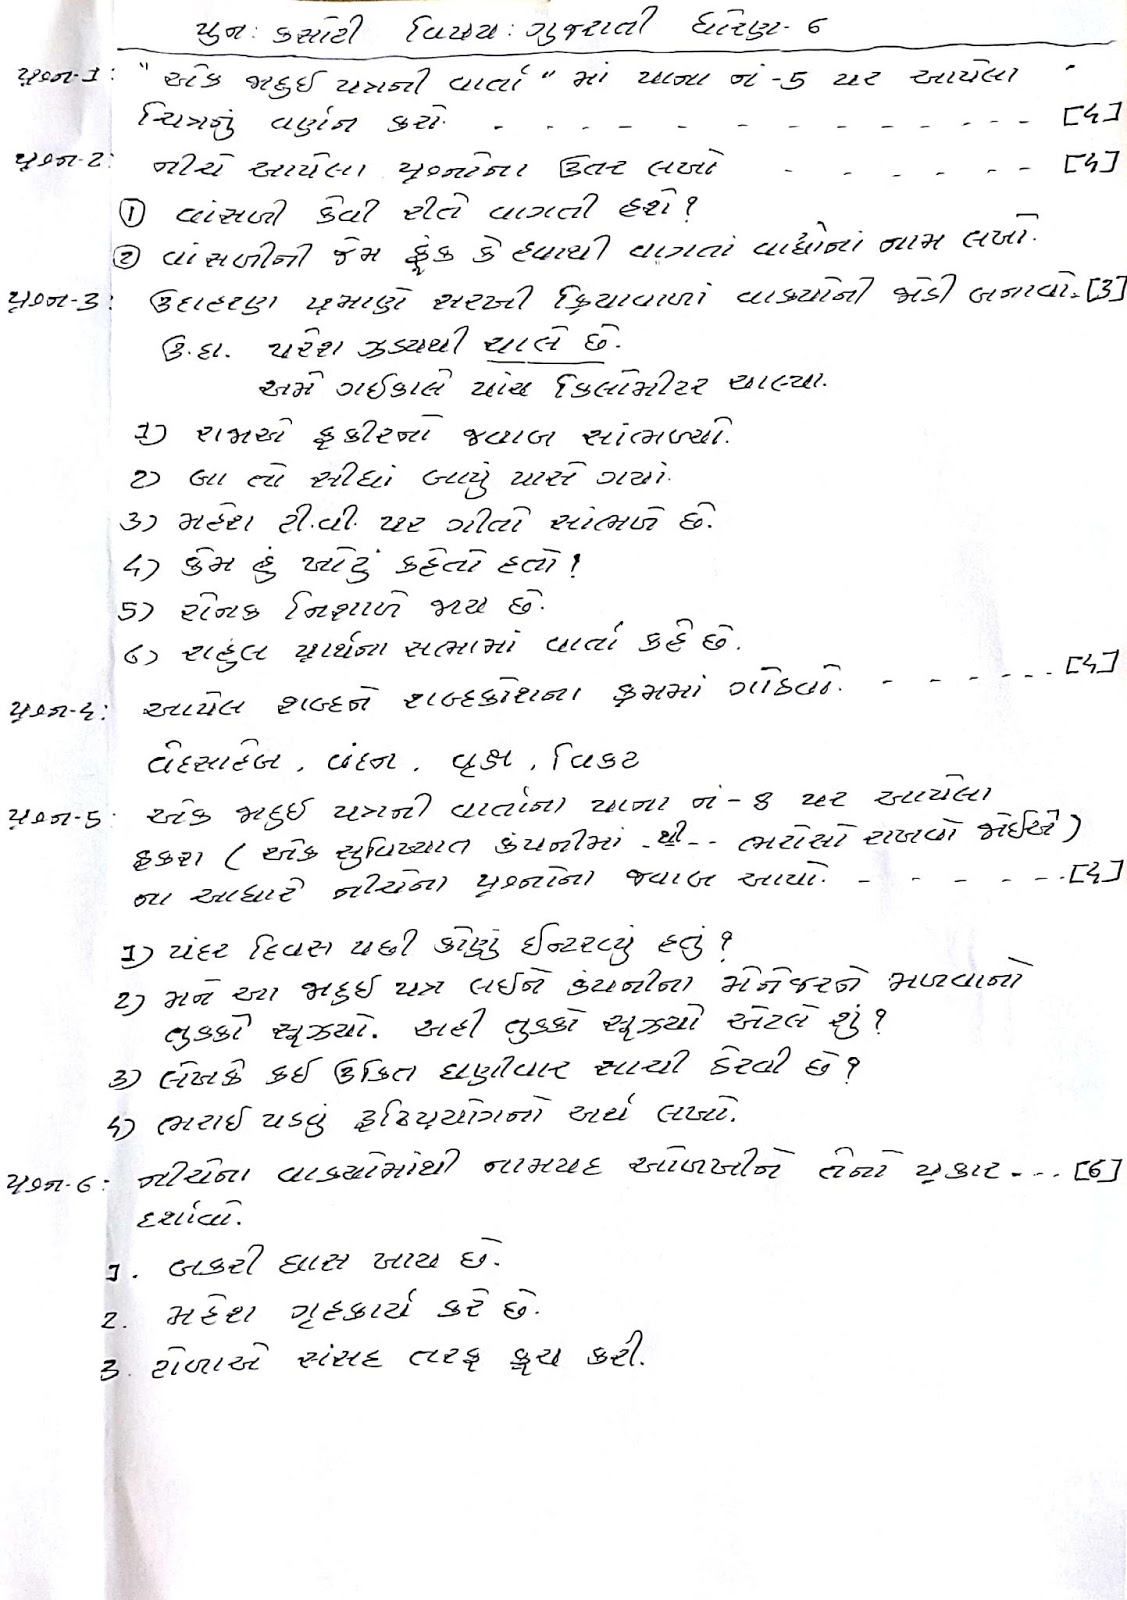 પુન: કસોટી વિષય: ગુજરાતી ધોરણ- 6
પ્રશ્ન-1: "એક જાદુઇ પત્રની વાર્તા" માં પાના નં-5 પર આપેલા
ચિત્રનું વર્ણન કરો. [4]
પ્રશ્ન-2: નીચે આપેલા પ્રશ્નોના ઉતર લખો [4]
① વાંસળી કેવી રીતે વાગતી હશે?
② વાંસળીની જેમ ફૂંક કે હવાથી વાગતાં વાદ્યોનાં નામ લખો.
પ્રશ્ન-3: ઉદાહરણ પ્રમાણે સરખી ક્રિયાવાળાં વાક્યોની જોડી બનાવો. [3]
ઉ.દા. પરેશ ઝડપથી ચાલે છે.
અમે ગઈકાલે પાંચ કિલોમીટર ચાલ્યા.
1) રાજાએ ફકીરનો જવાબ સાંભળ્યો.
2) બા તો સીધાં બાપુ પાસે ગયાં.
3) મહેશ ટી.વી. પર ગીતો સાંભળે છે.
4) કેમ હું ખોટું કહેતો હતો!
5) રોનક નિશાળે જાય છે.
6) રાહુલ પ્રાર્થના સભામાં વાર્તા કહે છે.
પ્રશ્ન-4: આપેલ શબ્દને શબ્દકોશના ક્રમમાં ગોઠવો. [4]
વૈદસાહેબ, વંદન, વૃક્ષ, વિકટ
પ્રશ્ન-5: એક જાદુઇ પત્રની વાર્તાના પાના નં-8 પર આપેલા
ફકરા (એક સુવિખ્યાત કંપનીમાં - થી-- ભરોસો રાખવો જોઈએ)
ના આધારે નીચેના પ્રશ્નોના જવાબ આપો. [4]
1) પંદર દિવસ પછી કોનું ઈન્ટરવ્યું હતું?
2) મને આ જાદુઇ પત્ર લઈને કંપનીના મેનેજરને મળવાનો
તુક્કો સૂઝ્યો. અહીં તુક્કો સૂઝ્યો એટલે શું?
3) લેખકે કઈ ઉકિત ઘણીવાર સાચી ઠેરવી છે?
4) ભરાઈ પડવું રૂઢિપ્રયોગનો અર્થ લખો.
પ્રશ્ન-6: નીચેના વાક્યોમાંથી નામપદ ઓળખીને તેનો પ્રકાર [6]
દર્શાવો.
1. બકરી ઘાસ ખાય છે.
2. મહેશ ગૃહકાર્ય કરે છે.
3. ટોળાએ સંસદ તરફ કૂચ કરી.